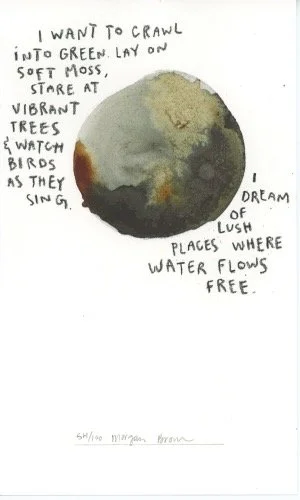 I WANT TO CRAWL
INTO GREEN. LAY ON
SOFT MOSS,
STARE AT
VIBRANT
TREES
& WATCH
BIRDS
AS THEY
SING.
I
DREAM
OF
LUSH
PLACES WHERE
WATER FLOWS
FREE.
/100 Morgan Brown